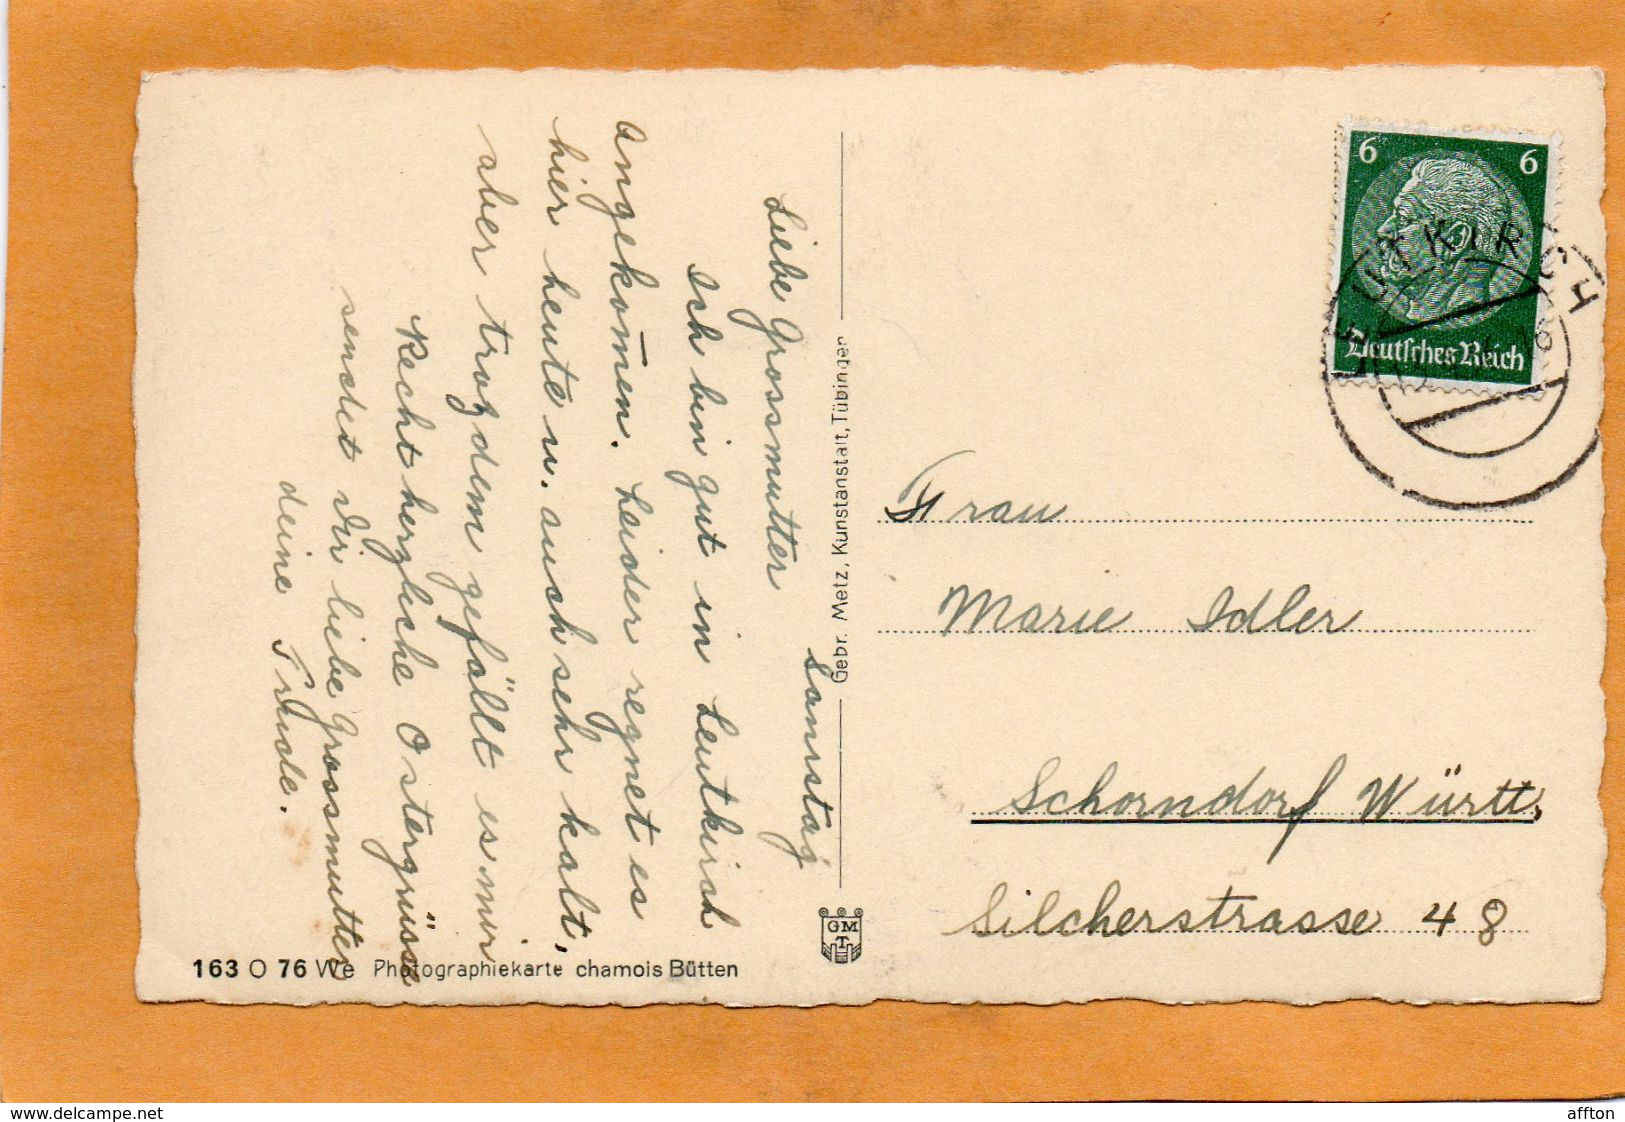 Samstag
Liebe Grossmutter
Ich bin gut in Leutkirch
angekom̅en. Leider regnet es
hier heute u. auch sehr kalt,
aber trozdem gefällt es mir
Recht herzliche Ostergrüsse
sendet dir liebe Grossmutter
deine Trude.
163 O 76 We Photographiekarte chamois Bütten
Gebr. Metz, Kunstanstalt, Tübingen
GM
T
6 6
Deutsches Reich
LEUTKIRCH
Frau
Marie Idler
Schorndorf Württ.
Silcherstrasse 48
www.delcampe.net
affton